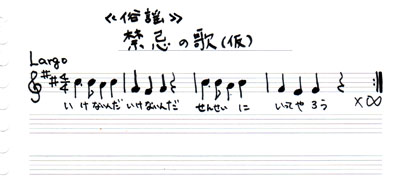 ≪俗謡≫
禁忌の歌(仮)
Largo
4/4
いけないんだ いけないんだ せんせいに いってやろう ×∞